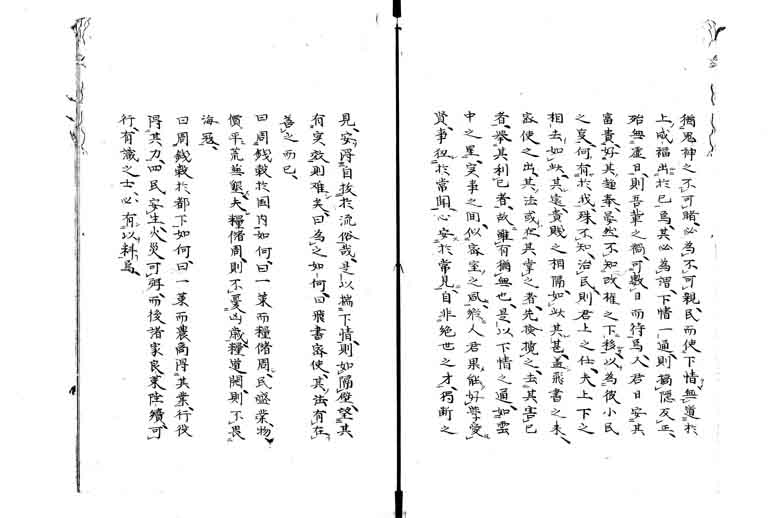 猶鬼神之不可睹、必為不可親民、而使下情無道於
上、威福出於己焉、其必為謂下情一通、則禍隠反正、
殆無虚日、則吾輩之禍、可數日而待焉、人君日安其
富貴、好其趨奉、晏然不知、政権之下移、以為彼小民
之哀、何有於我、殊不知、治民則君上之仕、夫上下之
相去、如此其遠、貴賤之相隔、如此其甚、蓋飛書之未、
密使之出、其法或使其掌之者、先検攬之、去其害己
者、挙其利己者、故雖有猶無也、是以下情之通、如雲
中之星、実事之間、似密室之風、
人君果能好尊愛
賢、事狃於常聞、心安於常見、自非絶世之才、独断之
見、安得自抜於流俗哉、是以揣下情、則如隔壁望其
何突、救則难矣、曰為之如何、曰飛書密使、其法有在、
善之而已、
曰周錢穀於国内如何、曰一策而糧儲周、民遂業、物
價平、荒蕪墾、夫糧儲周、則不憂凶歳、糧道開、則不畏
海冦、
曰周錢穀於都下如何、曰一策而農商得其業、行役
得其力、四民安生、火災可弭、而後諸家良策陸續可
行、有識之士、必有以料焉、